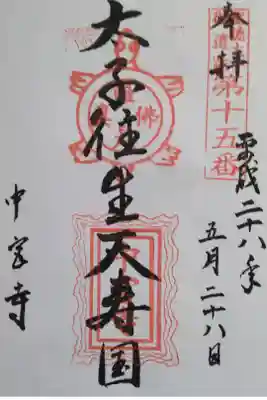 奉拝
第十五番
平成二十八年
五月二十八日
太子往生天寿国
中宮寺